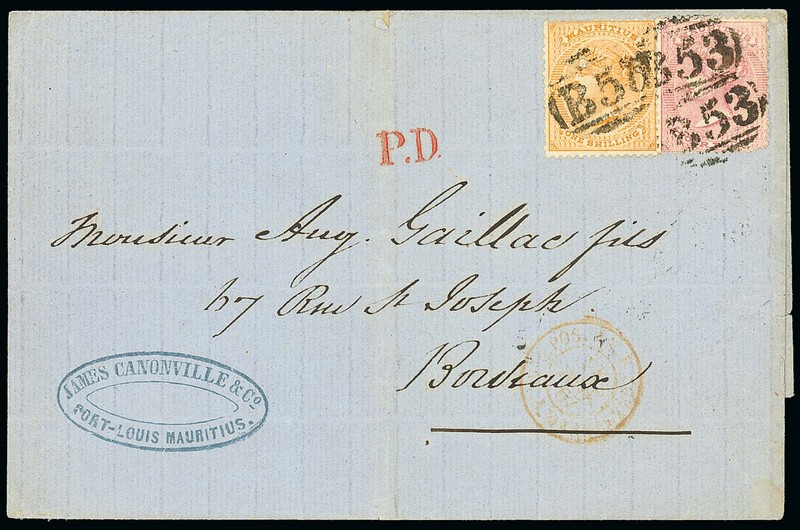 MAURITIUS
ONE SHILLING
B53
B53
B53
P.D.
Monsieur Aug. Gaillac fils
67 Rue St Joseph.
Bordeaux
JAMES CANONVILLE & Co
PORT-LOUIS MAURITIUS.